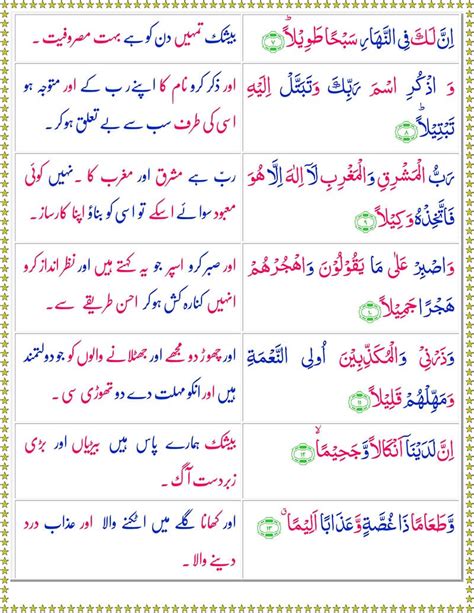 اِنَّ لَكَ فِی النَّهَارِ سَبْحًا طَوِیْلًاؕ ۷
بیشک تمہیں دن کو ہے بہت مصروفیت ۔
وَ اذْكُرِ اسْمَ رَبِّكَ وَتَبَتَّلْ اِلَیْهِ
تَبْتِیْلًاؕ ۸
اور ذکر کرو نام کا اپنے رب کے اور متوجہ ہو
اسی کی طرف سب سے بے تعلق ہو کر ۔
رَبُّ الْمَشْرِقِ وَالْمَغْرِبِ لَاۤ اِلٰهَ اِلَّا هُوَ
فَاتَّخِذْهُ وَكِیْلًا ۹
ربّ ہے مشرق اور مغرب کا ۔ نہیں کوئی
معبود سوائے اسکے تو اسی کو بناؤ اپنا کارساز ۔
وَاصْبِرْ عَلٰی مَا یَقُوْلُوْنَ وَاهْجُرْهُمْ
هَجْرًا جَمِیْلًا
اور صبر کرو اسپر جو یہ کہتے ہیں اور نظر انداز کرو
انہیں کنارہ کش ہو کر احسن طریقے سے ۔
وَذَرْنِیْ وَالْمُكَذِّبِیْنَ اُولِی النَّعْمَةِ
وَمَهِّلْهُمْ قَلِیْلًا ۱۱
اور چھوڑ دو مجھے اور جھٹلانے والوں کو جو دولتمند
ہیں اور انکو مہلت دے دو تھوڑی سی ۔
اِنَّ لَدَیْنَاۤ اَنْكَالًا وَّجَحِیْمًاۙ ۱۲
بیشک ہمارے پاس ہیں بیڑیاں اور بڑی
زبردست آگ ۔
وَّطَعَامًا ذَا غُصَّةٍ وَّعَذَابًا اَلِیْمًا ۱۳
اور کھانا گلے میں اٹکنے والا اور عذاب درد
دینے والا ۔